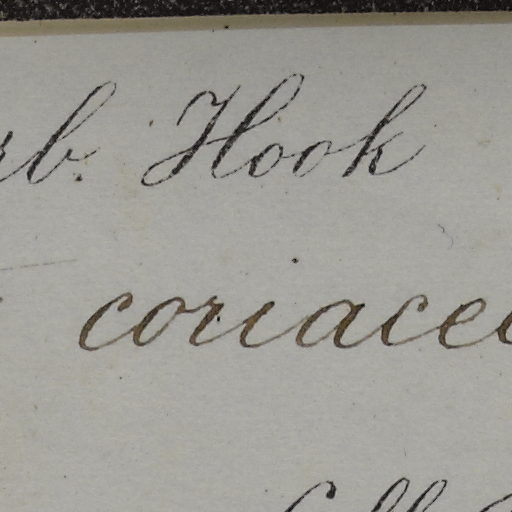 rb. Hook
coriace